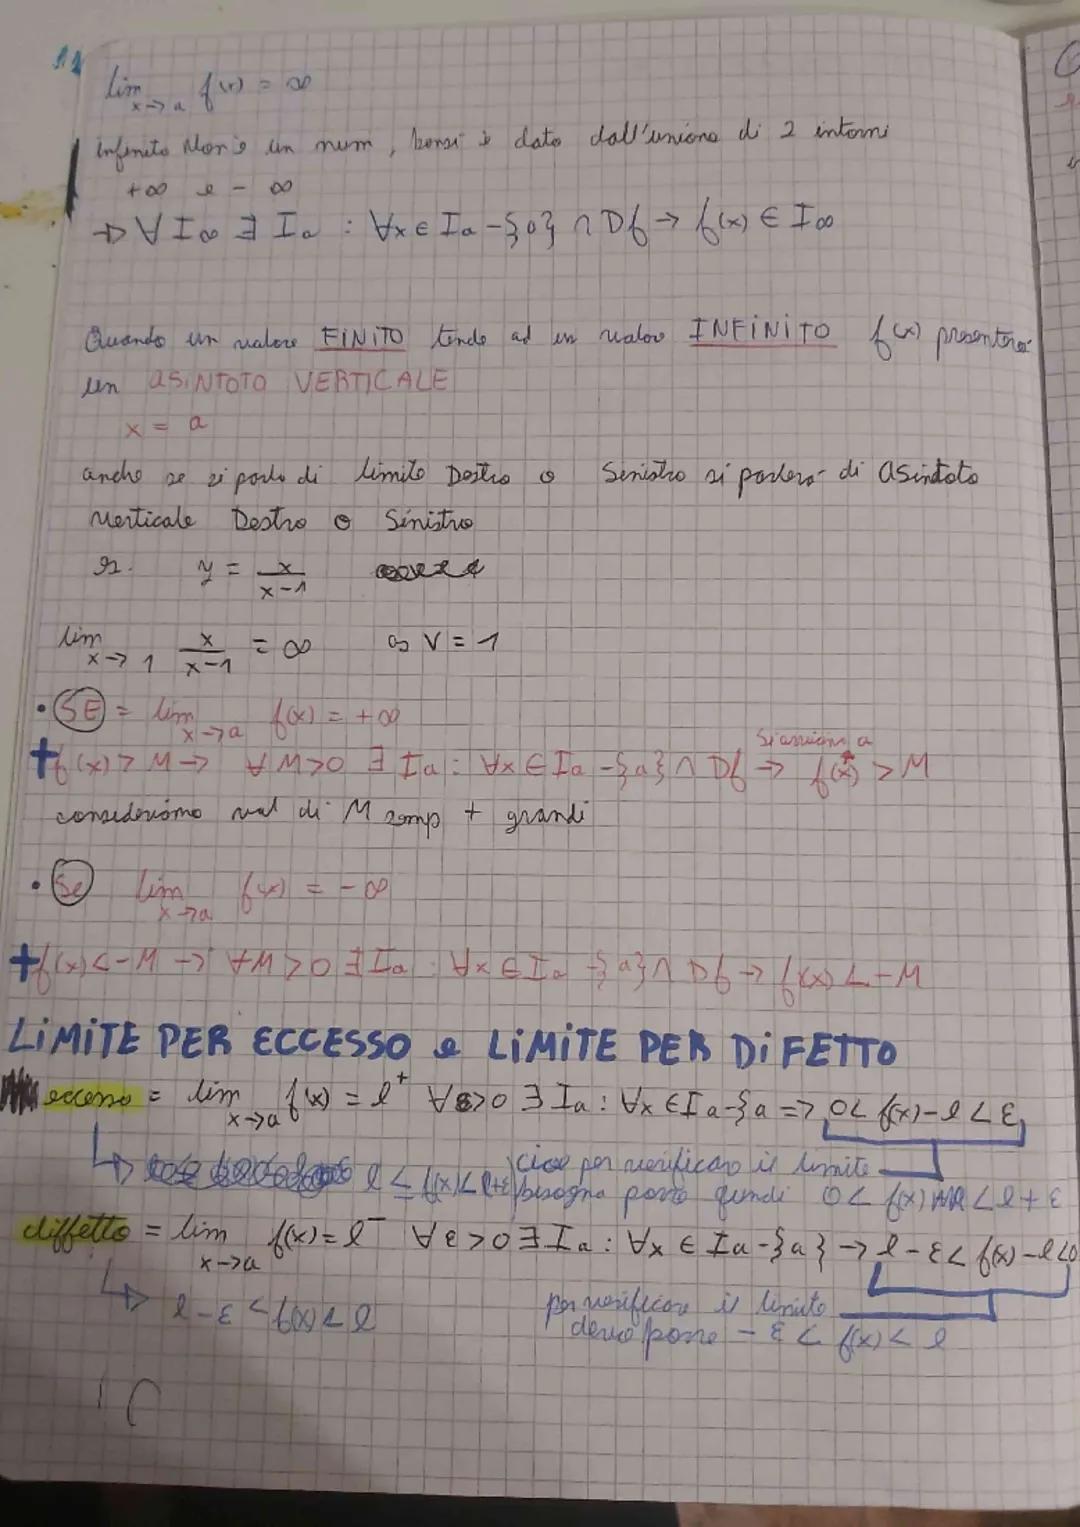 lim x→a f(x) = ∞
infinito Non è un num, bensi è dato dall'unione di 2 intorni
+∞ e - ∞
→ ∀ I∞ ∃ Ia : ∀x ∈ Ia -{a} ∩ Df → f(x) ∈ I∞
Quando un valore FINITO tende ad un valore INFINITO f(x) presenterà
un ASINTOTO VERTICALE
x = a
anche se si parla di limite Destro o Sinistro si parlerà di Asintoto
Verticale Destro o Sinistro
y = x/(x-1)
lim x→1 x/(x-1) = ∞ as V = 1
• SE = lim x→a f(x) = +∞
Siamo in a
+f(x) > M → ∀ M>0 ∃ Ia : ∀x ∈ Ia -{a} ∩ Df → f(x) > M
consideriamo val di M semp + grandi
• Se lim x→a f(x) = - ∞
+f(x) < -M → ∀M > 0 ∃ Ia : ∀x ∈ Ia -{a} ∩ Df → f(x) < -M
LIMITE PER ECCESSO e LIMITE PER DIFETTO
eccesso = lim x→a f(x) = l⁺ ∀ε>0 ∃ Ia : ∀x ∈ Ia -{a => 0< f(x)-l < ε
l ≤ f(x) < l+ε cioè per verificare il limite
bisogna porre quindi 0 < f(x) < l + ε
diffetto = lim x→a f(x) = l⁻ ∀ ε>0 ∃ Ia : ∀x ∈ Ia -{a} → l - ε < f(x) - l <0
l - ε < f(x) < l per verificare il limite
devo porre - ε < f(x) < l